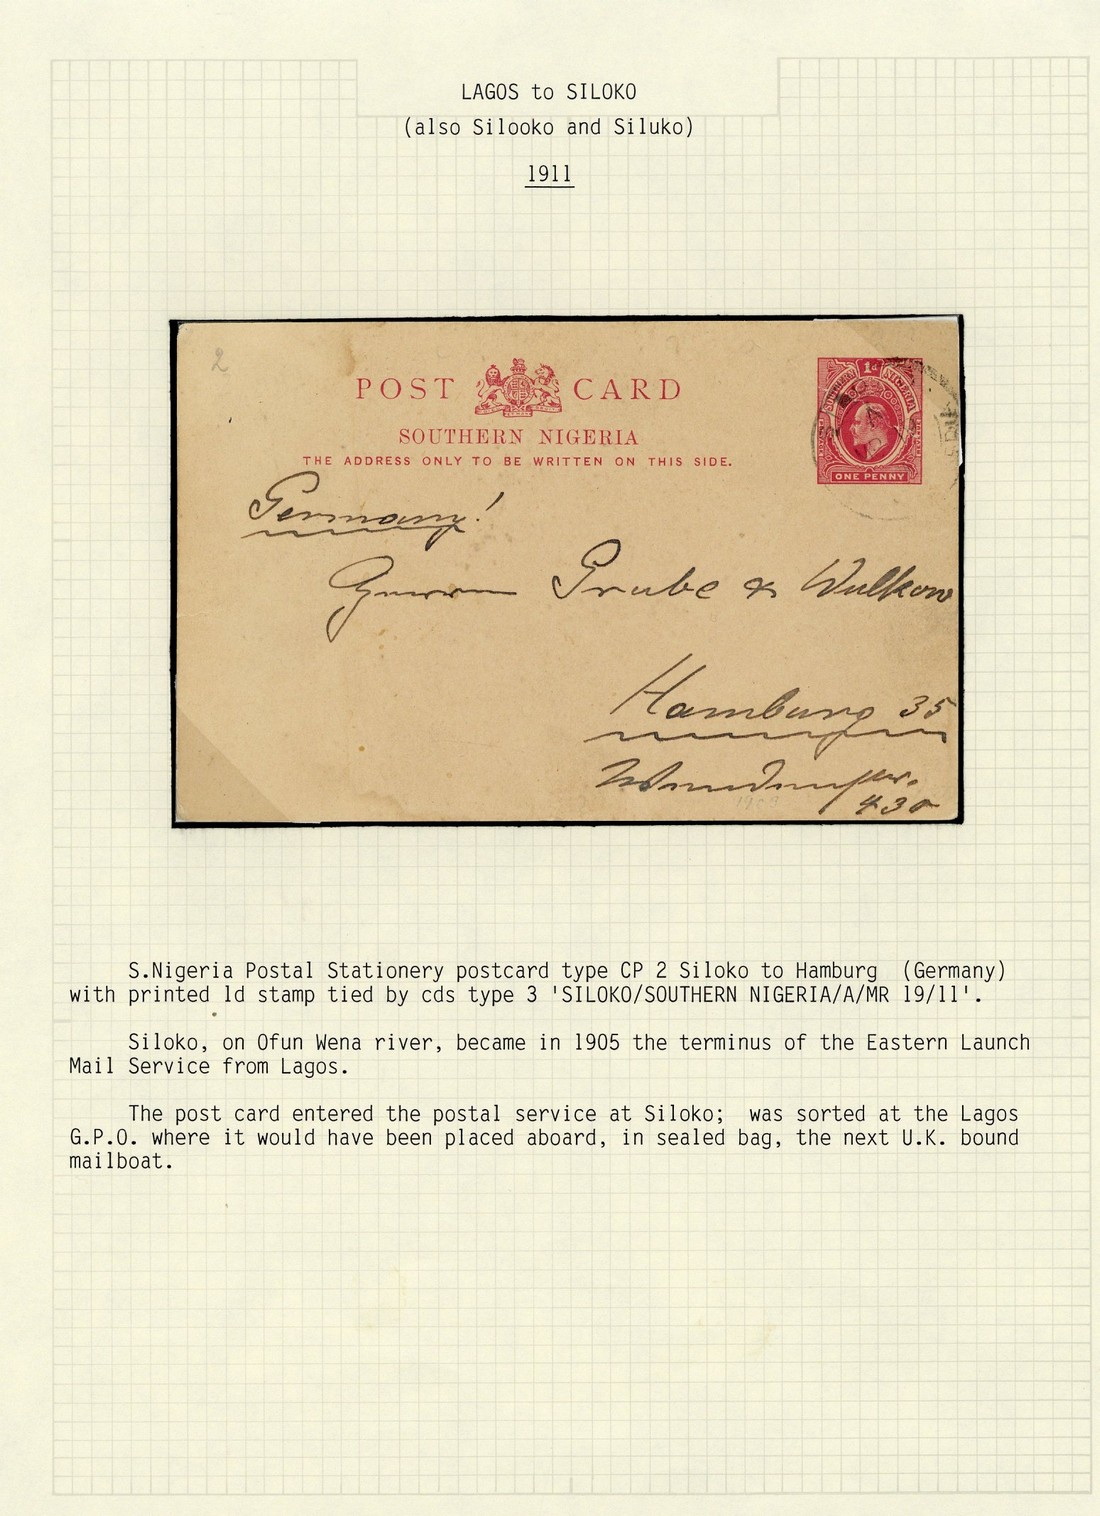 LAGOS to SILOKO
(also Silooko and Siluko)
1911
2
POST CARD
SOUTHERN NIGERIA
THE ADDRESS ONLY TO BE WRITTEN ON THIS SIDE.
SOUTHERN NIGERIA
1d
POSTAGE
ONE PENNY
Germany!
Herren Grube & Wulkow
Hamburg 35
430
S.Nigeria Postal Stationery postcard type CP 2 Siloko to Hamburg (Germany)
with printed 1d stamp tied by cds type 3 'SILOKO/SOUTHERN NIGERIA/A/MR 19/11'.
Siloko, on Ofun Wena river, became in 1905 the terminus of the Eastern Launch
Mail Service from Lagos.
The post card entered the postal service at Siloko; was sorted at the Lagos
G.P.O. where it would have been placed aboard, in sealed bag, the next U.K. bound
mailboat.